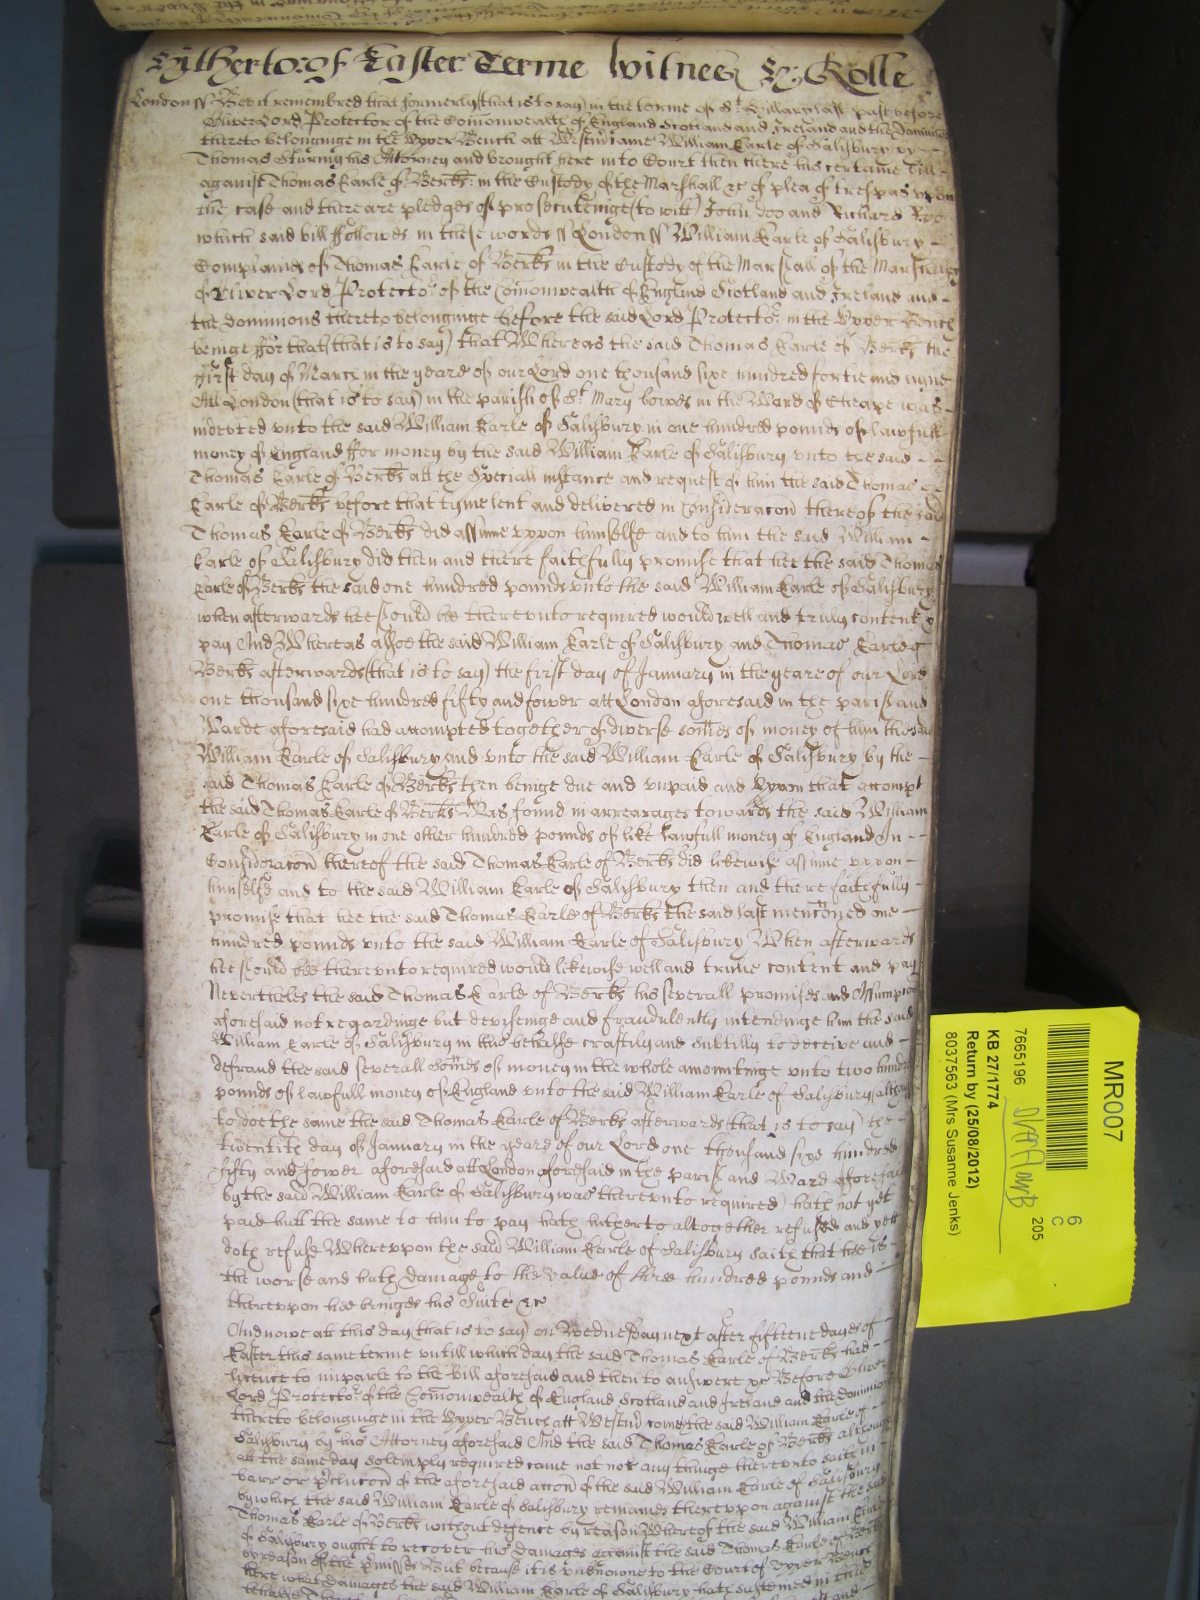 Hytherto of Easter Terme Witnes Hy: Rolle
London ss Bee it remembred that formerly (that is to say) in the terme of St. Hillary last past before
Oliver Lord Protector of the Comonwealth of England Scotland and Ireland and the Dominions
thereto belonginge in the Vpper Bench att Westm came William Earle of Salisbury by
Thomas Sturny his Attorney and brought here into Court then there his certaine bill
against Thomas Earle of Berks: in the Custody of the Marshall &c of plea of trespas vpon
the case and there are pledges of prosecuteinge (to witt) John doo and Richard Roe
which said bill ffollowes in these words ss London ss William Earle of Salisbury
Complaines of Thomas Earle of Berks in the Custody of the Marshall of the Marshalsey
of Oliver Lord Protector of the Comonwealth of England Scotland and Ireland and
the dominions thereto belonginge before the said Lord Protector in the Vpper Bench
beinge ffor that (that is to say) that Whereas the said Thomas Earle of Berks the
first day of March in the yeare of our Lord one thousand sixe hundred fortie and nyne
Att London (that is to say) in the parish of St. Mary bowes in the Ward of Cheape was
indebted vnto the said William Earle of Salisbury in one hundred pounds of lawfull
money of England ffor money by the said William Earle of Salisbury vnto the said
Thomas Earle of Berks att the Speciall instance and request of him the said Thomas
Earle of Berks before that tyme lent and delivered in Consideracon thereof the said
Thomas Earle of Berks did assume vppon himselfe and to him the said William
Earle of Salisbury did then and there faitefully promise that hee the said Thomas
Earle of Berks the said one hundred pounds vnto the said William Earle of Salisbury
when afterwards hee should bee therevnto required would well and truly content &
pay And Whereas alsoe the said William Earle of Salisbury and Thomas Earle of
Berks afterwards (that is to say) the first day of January in the yeare of our Lord
one thousand sixe hundred fifty and fower att London aforesaid in the parish and
Warde aforesaid had accompted together of diverse somes of money of him the said
William Earle of Salisbury and vnto the said William Earle of Salisbury by the
said Thomas Earle of Berks then beinge due and vnpaid and Vppon that accompt
the said Thomas Earle of Berks Was found in arrearages towards the said William
Earle of Salisbury in one other hundred pounds of like lawfull money of England In
Consideracon thereof the said Thomas Earle of Berks did likewise assume vppon
himselfe and to the said William Earle of Salisbury then and there faitefully
promise that hee the said Thomas Earle of Berks the said last mencioned one
hundred pounds vnto the said William Earle of Salisbury When afterwards
hee should bee therevnto required would likewise well and trulie content and pay
Neverthelesse the said Thomas Earle of Berks his severall promises and Assumpcon
aforesaid not regardinge but deviseinge and fraudulently intendinge him the said
William Earle of Salisbury in this behalfe craftily and subtilly to deceive and
defraud the said severall Somes of money in the whole amountinge vnto two hundred
pounds of lawfull money of England vnto the said William Earle of Salisbury (although
to doe the same the said Thomas Earle of Berks afterwards (that is to say) the
twentith day of January in the yeare of our Lord one thousand sixe hundred
fifty and fower aforesaid att London aforesaid in the parish and Ward aforesaid
by the said William Earle of Salisbury was therevnto required) hath not yet
paid butt the same to him to pay hath hitherto altogether refused and yett
doth refuse Wherevpon the said William Earle of Salisbury saith that hee is
the worse and hath damage to the value of three hundred pounds and
therevpon hee bringes his Suite &c
And nowe att this day (that is to say) on Wednesday next after fifteene dayes of
Easter this same terme vntill which day the said Thomas Earle of Berks had
licence to imparle to the bill aforesaid and then to answere &c Before Oliver
Lord Protector of the Comonwealth of England Scotland and Ireland and the dominions
thereto belonginge in the Vpper Bench att Westm comes the said William Earle of
Salisbury by his Attorney aforesaid And the said Thomas Earle of Berks although
att the same day solemply required came not nor any thinge therevnto saith in
barr or preclucon of the aforesaid accon of the said William Earle of Salisbury
by which the said William Earle of Salisbury remaines therevpon against the said
Thomas Earle of Berks without defence by reason Whereof the said William Earle
of Salisbury ought to recover his damages against the said Thomas Earle of Berks
by reason of the premisses But because it is vnknowne to the Court of Vpper Bench
here what damages the said William Earle of Salisbury hath susteined in this
MR007
6
C
205
7665196
KB 27/1774
Return by (25/08/2012)
8037563 (Mrs Susanne Jenks)